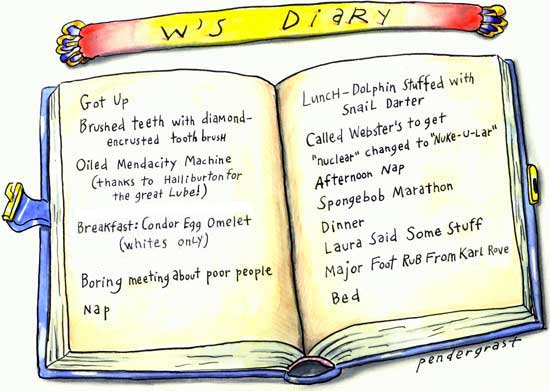 W's Diary
Got Up
Brushed teeth with diamond-
encrusted toothbrush
Oiled Mendacity Machine
(thanks to Halliburton for
the great Lube!)
Breakfast: Condor Egg Omelet
(whites only)
Boring meeting about poor people
Nap
Lunch-Dolphin Stuffed with
Snail Darter
Called Webster's to get
"nuclear" changed to "Nuke-u-Lar"
Afternoon Nap
Spongebob Marathon
Dinner
Laura Said Some Stuff
Major Foot Rub From Karl Rove
Bed
pendergrast